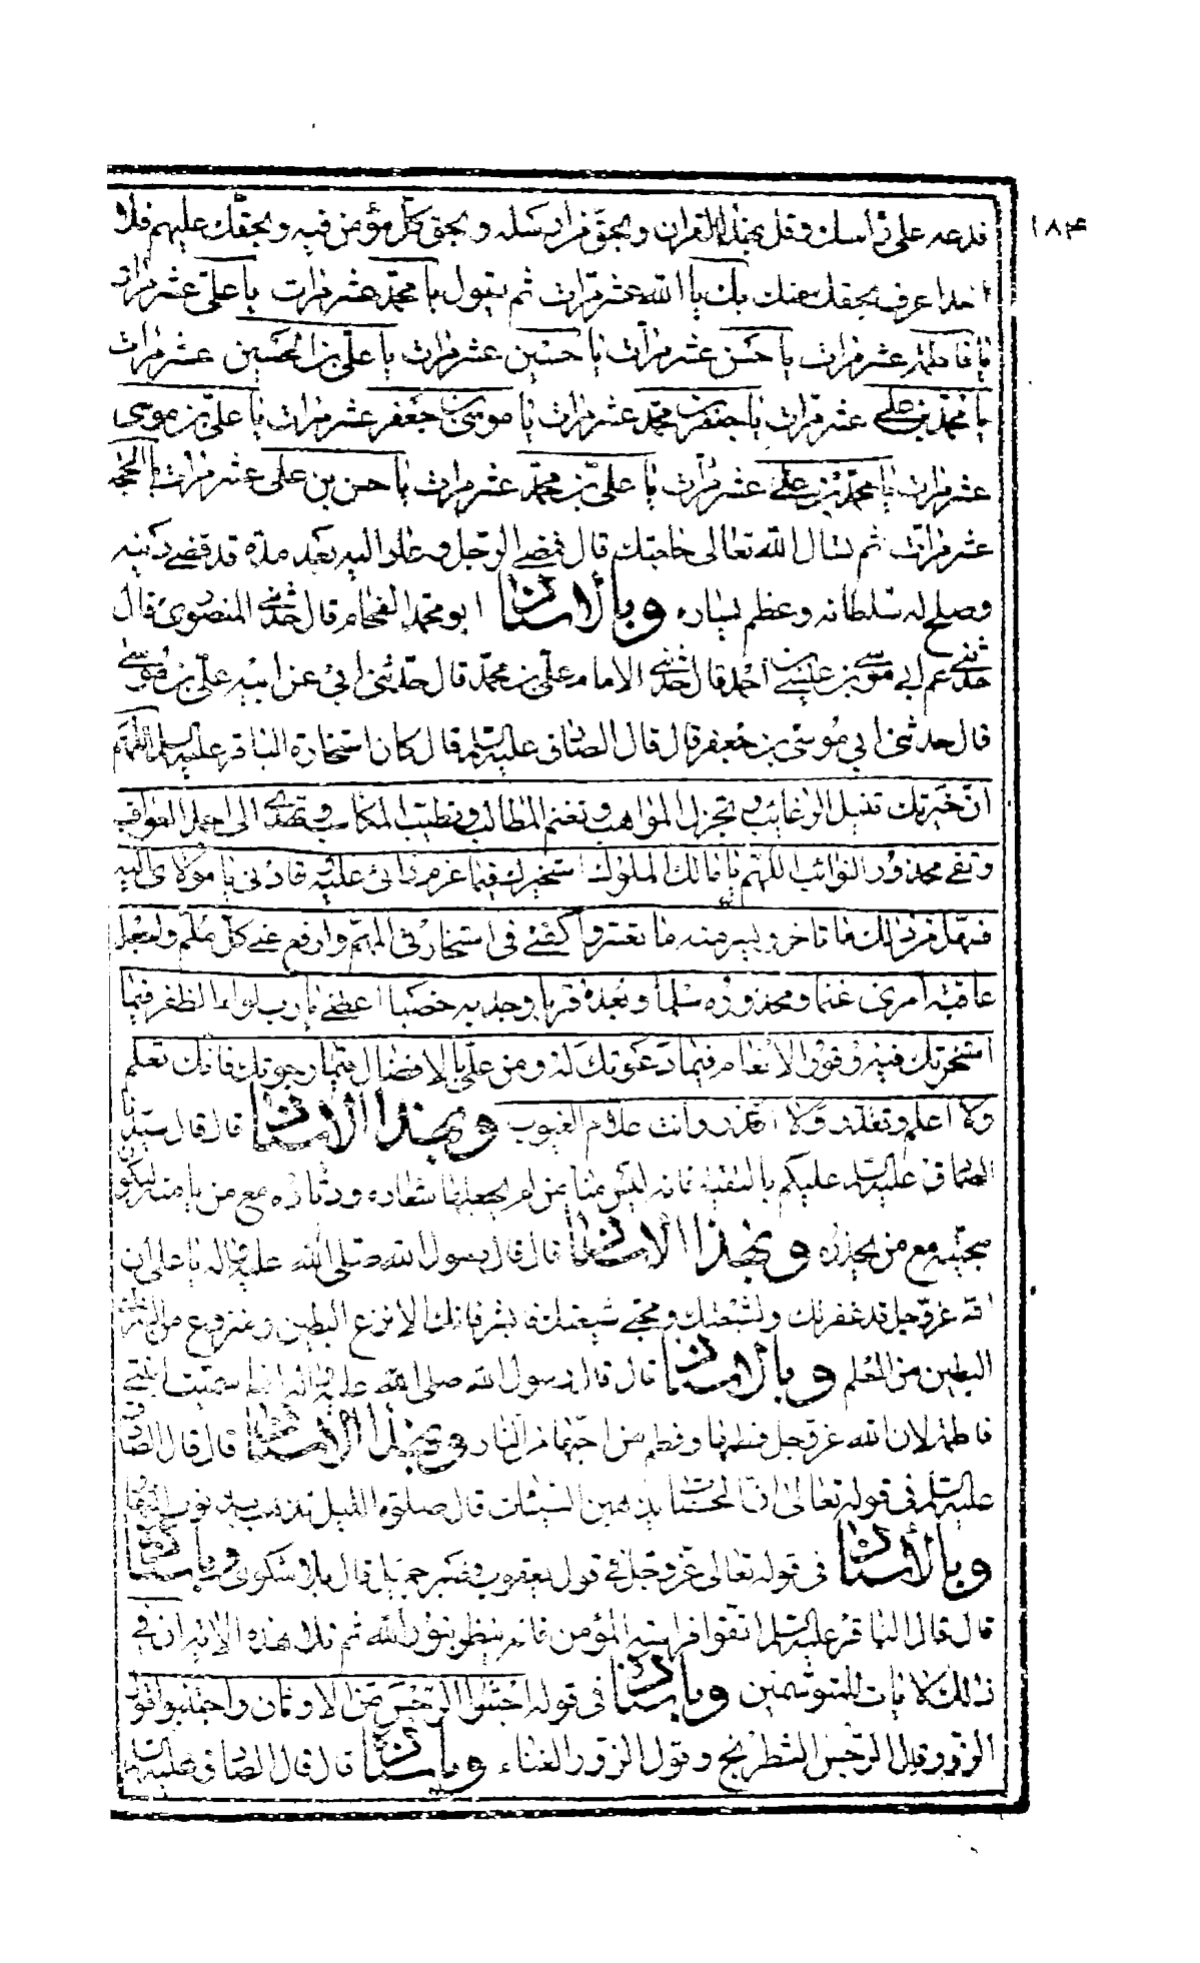 ١٨٤
فدعه على رأسك وقل بهذا القران وبحق من ارسله وبحق كل مؤمن فيه وبحقك عليهم فلا
احدا عرف بحقك منك بك يا الله عشر مرات ثم يقول يا محمد عشر مرات يا على عشر مرات
يا فاطمة عشر مرات يا حسن عشر مرات يا حسين عشر مرات يا على بن الحسين عشر مرات
يا محمد بن على عشر مرات يا جعفر بن محمد عشر مرات يا موسى بن جعفر عشر مرات يا على بن موسى
عشر مرات يا محمد بن على عشر مرات يا على بن محمد عشر مرات يا حسن بن على عشر مرات يا الحجة
عشر مرات ثم تسال الله تعالى حاجتك قال فمضى الرجل وعاد اليه بعد مدة قد قضى دينه
وصلح له سلطانه وعظم يساره وبالاسناد ابو محمد الفحام قال حدثنى المنصورى قال
حدثنى عم ابى موسى بن عيسى بن احمد قال حدثنى الامام على بن محمد قال حدثنى ابى عن ابيه على بن موسى
قال حدثنى ابى موسى بن جعفر قال قال الصادق عليه السلم قال كان استخارة الباقر عليه السلم اللهم
ان خيرتك تنيل الرغائب وتجزل المواهب وتغنم المطالب وتطيب المكاسب وتهدى الى اجمل العواقب
وتقى محذور النوائب اللهم يا مالك الملوك استخيرك فيما عزم رائى عليه قادنى يا مولاى اليه
فسهل من ذلك ما تاخر ويسر منه ما تعسر واكفنى فى استخارتى المهم وارفع عنى كل ملم واجعل
عاقبة امرى غنما ومحذوره سلما وبعده قربا وجدبه خصبا اعطنى يا رب لواء الظفر فيما
استخرتك فيه وفوز الانعام فيما دعوتك له ومن على بالافضال فيما رجوتك فانك تعلم
ولا اعلم وتقدر ولا اقدر وانت علام الغيوب وبهذا الاسناد قال قال سيدنا
الصادق عليه السلم عليكم بالتقية فانه ليس منا من لم يجعلها شعاره ودثاره مع من يامنه ليكون
سجيته مع من يحذره وبهذا الاسناد قال قال رسول الله صلى الله عليه واله يا على ان
الله عز وجل قد غفر لك ولشيعتك ومحبى شيعتك فابشر فانك الانزع البطين منزوع من الشرك
البطين من العلم وبالاسناد قال قال رسول الله صلى الله عليه واله انما سميت ابنتى
فاطمة لان الله عز وجل فطمها وفطم من احبها من النار وبهذا الاسناد قال قال الصادق
عليه السلم فى قوله تعالى ان الحسنات يذهبن السيئات قال صلوة الليل تذهب بذنوب النهار
وبالاسناد فى قوله تعالى عز وجل فى قول يعقوب فصبر جميل قال بلا شكوى وباسناده
قال قال الباقر عليه السلم اتقوا فراسة المؤمن فانه ينظر بنور الله ثم تلا هذه الاية ان فى
ذلك لايات للمتوسمين وباسناده فى قوله اجتنبوا الرجس من الاوثان واجتنبوا قول
الزور قال الرجس الشطرنج وقول الزور الغناء وباسناده قال قال الصادق عليه السلم